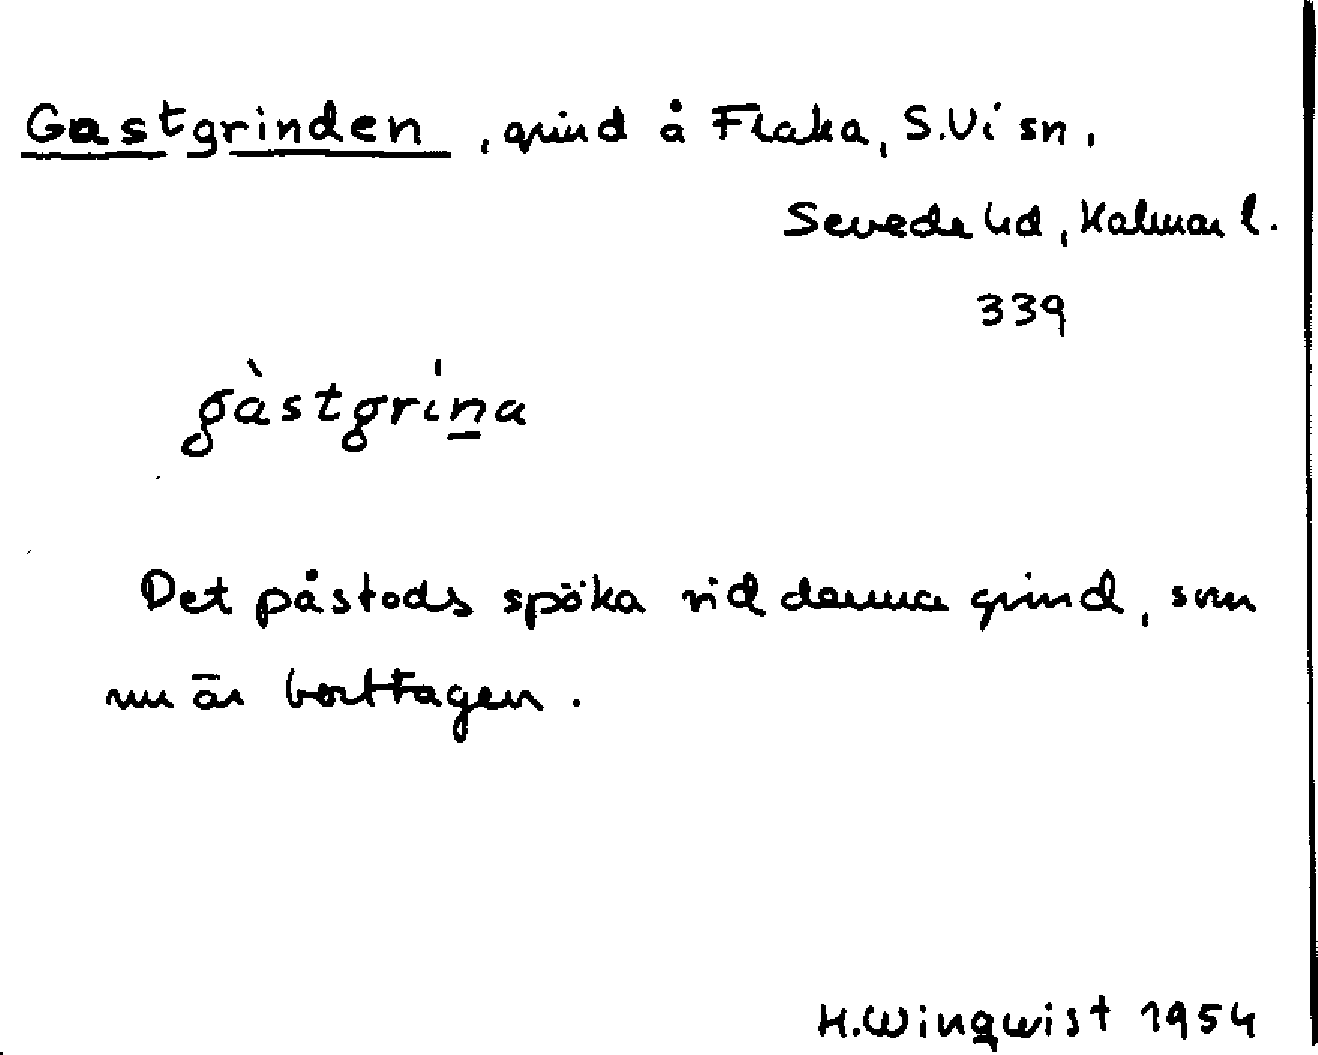 Gastgrinden, grind å Flaka, S.Vi sn,
Sevede hd, Kalmar l.
339
gàstgrin̠a
Det påstods spöka vid denna grind, som
nu är borttagen.
H.Winqwist 1954